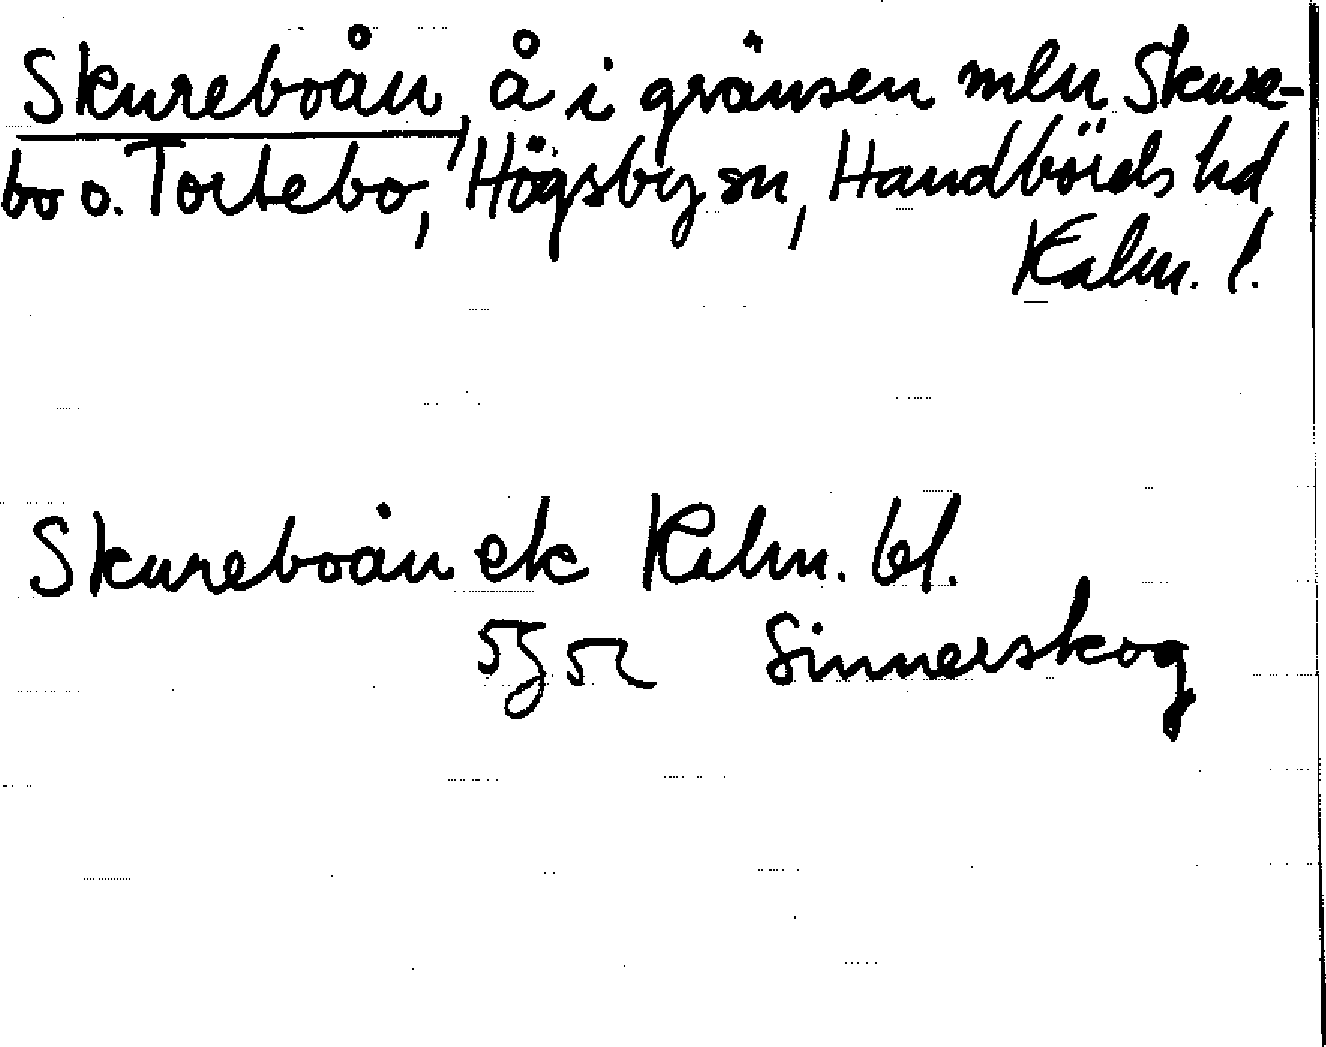 Skureboån, å i gränsen mln Skure-
bo o. Tortebo, Högsby sn, Handbörds hd
Kalm. l.
Skureboån ek Kalm. bl.
5g5r Sinnerskog